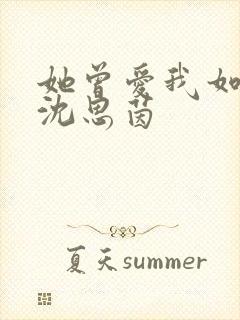 她曾爱我如
沈思茵
夏天summer